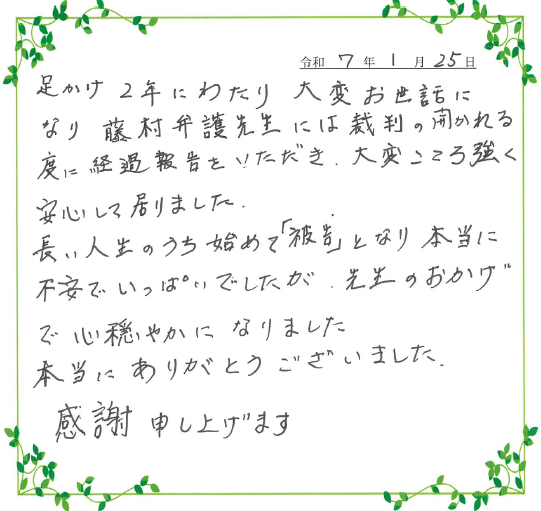 令和 7 年 1 月 25 日
足かけ 2年にわたり 大変お世話に
なり 藤村弁護先生には裁判の開かれる
度に経過報告をいただき、大変こころ強く
安心して居りました.
長い人生のうち始めて「被告」となり本当に
不安でいっぱいでしたが、先生のおかげ
で心穏やかになりました
本当にありがとうございました.
感謝申し上げます